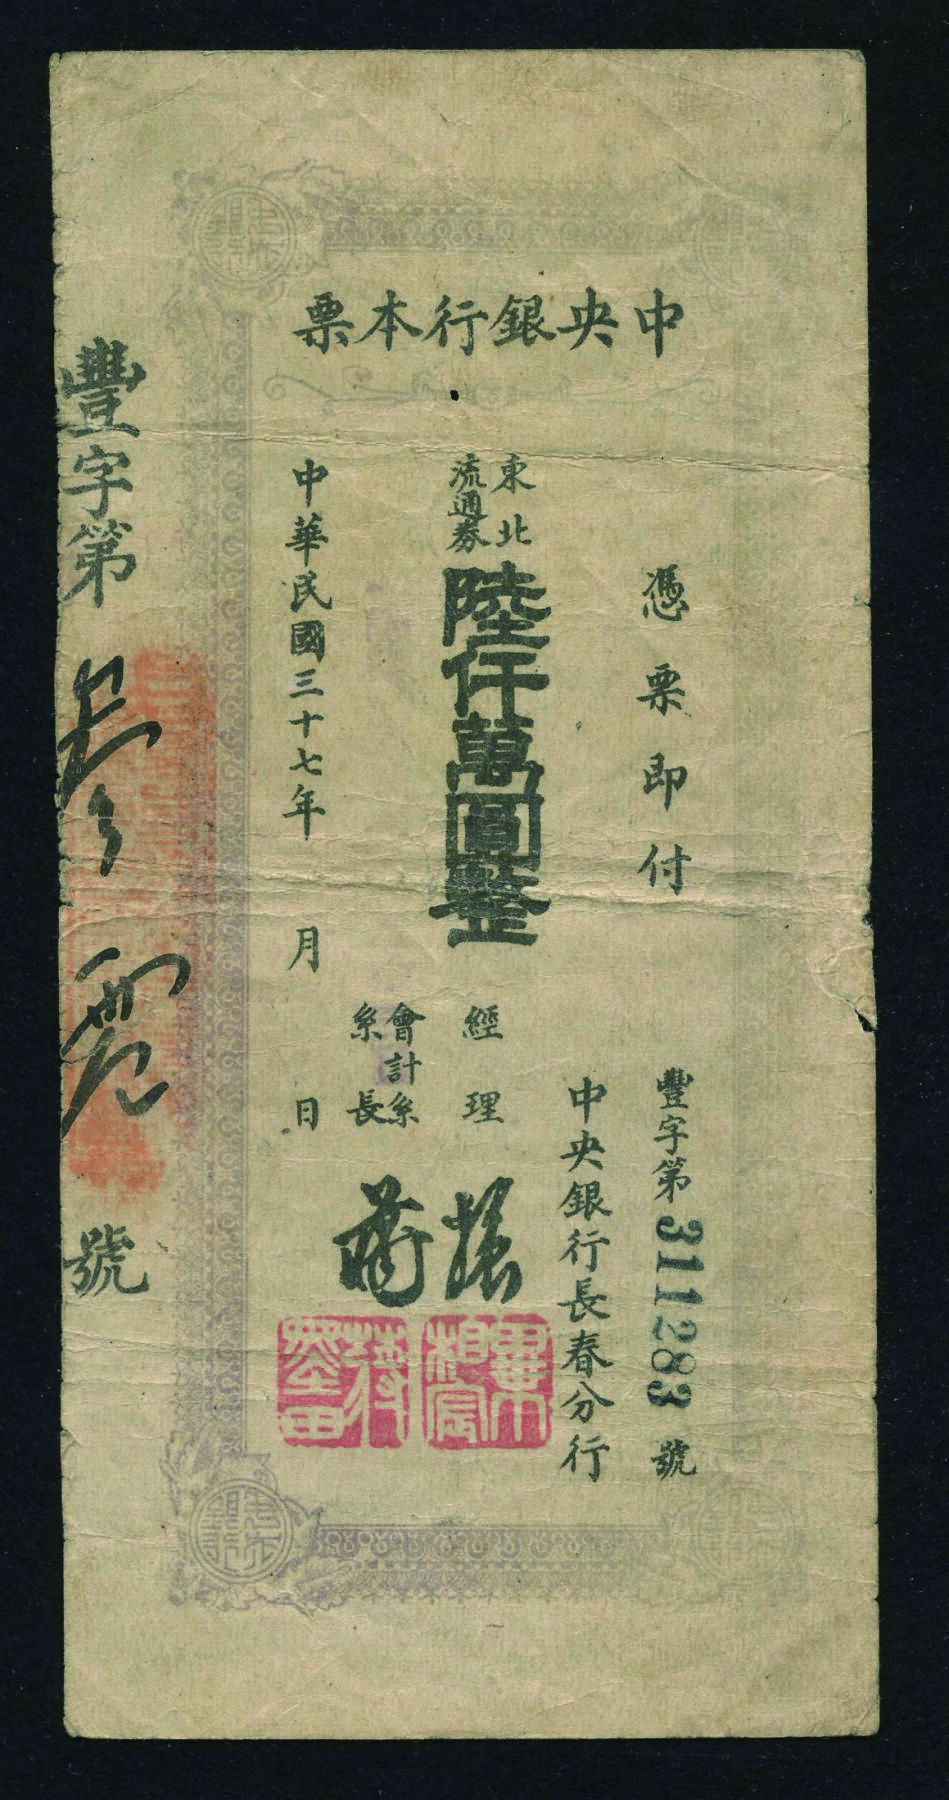 中央銀行本票
憑票即付
豐字第311283號
中央銀行長春分行
東北
流通券
陸仟萬圓整
經理
會計系
系長
中華民國三十七年 月 日
豐字第 號